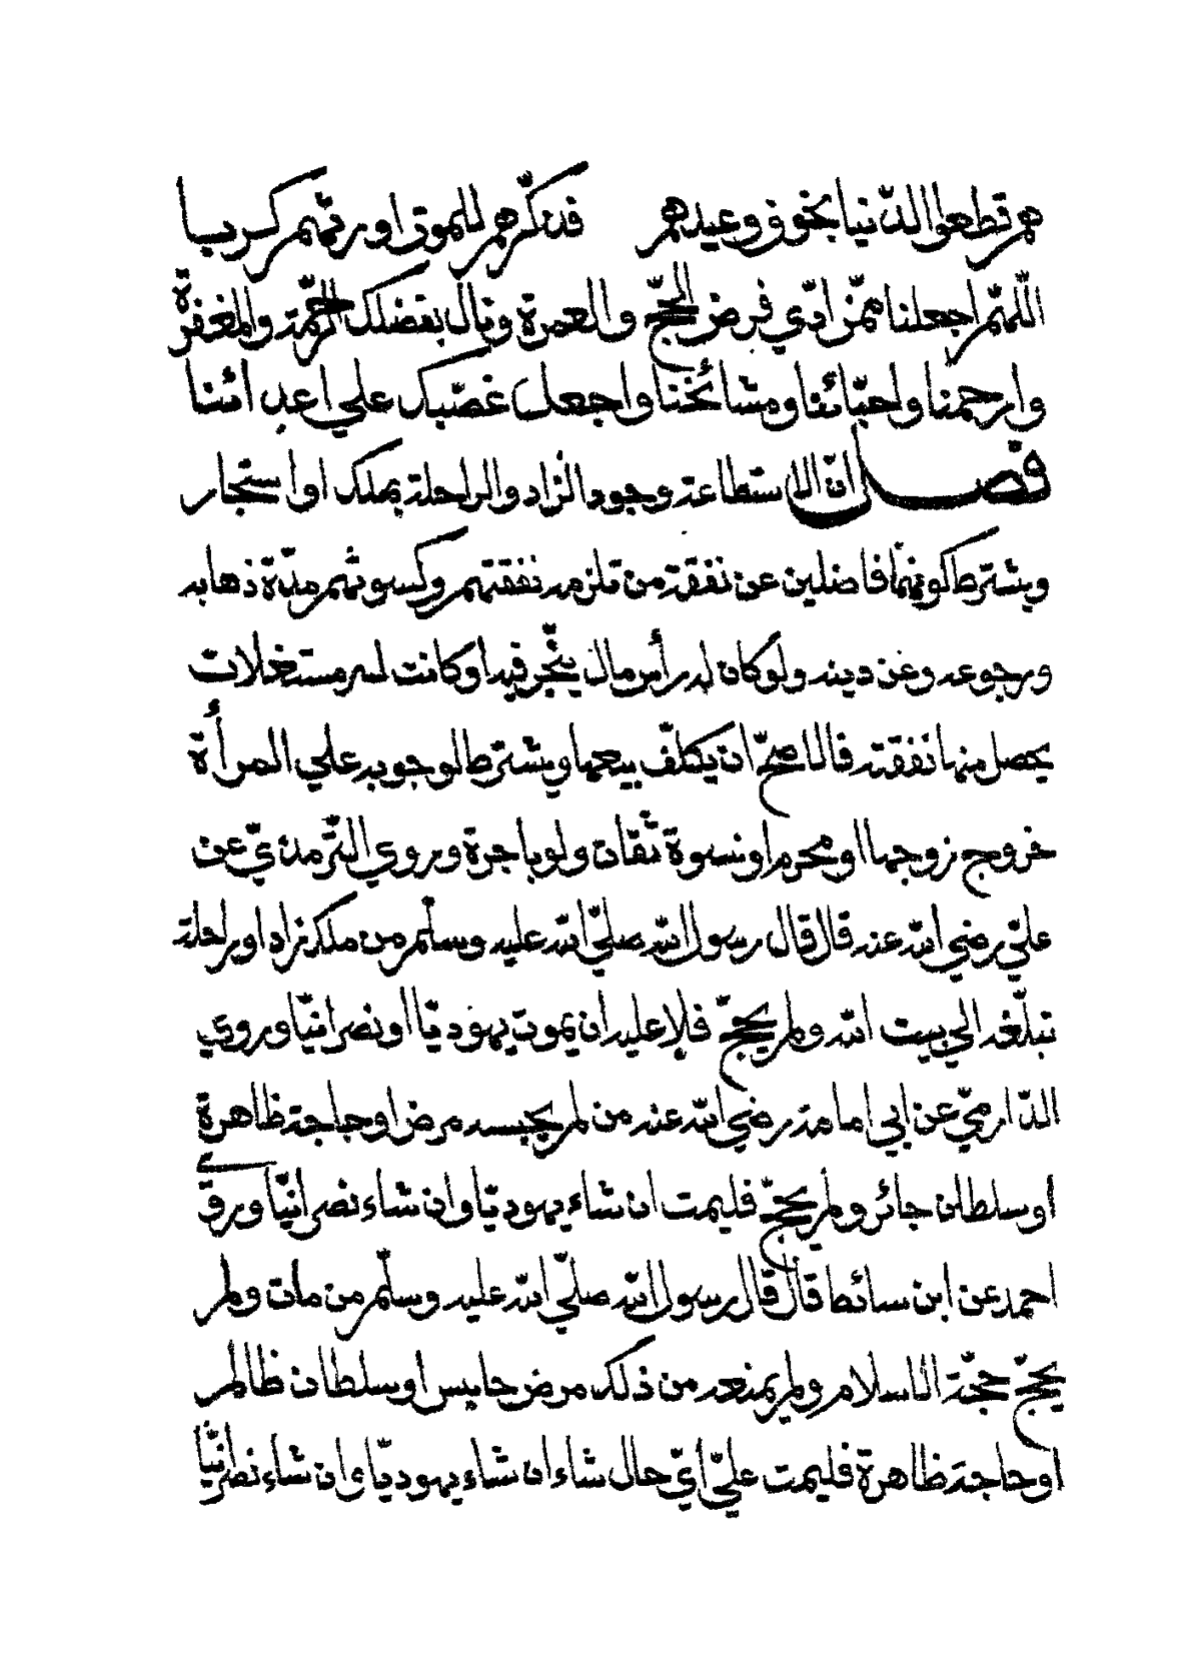 هم قطعوا الدّنيا بخوف وعيدهم فذكّرهم للموتي اورثهم كربا
اللّهمّ اجعلنا ممّن ادّي فرض الحجّ والعمرة ونال بفضلك الرّحمة والمغفرة
وارحمنا واحبّائنا ومشائخنا واجعل غضبك علي اعدائنا
فصل انّ الاستطاعة وجود الزاد والراحلة بملك او استجار
ويشترط كونهما فاضلين عن نفقة من تلزمه نفقتهم وكسوتهم مدّة ذهابه
ورجوعه وعن دينه ولو كان له رأس مال يتّجر فيه او كانت له مستغلات
يحصل منها نفقته فالاصحّ ان يكلّف بيعها ويشترط لوجوبه علي المرأة
خروج زوجها او محرم او نسوة ثقات ولو باجرة وروي التّرمذيّ عن
عليّ رضي الله عنه قال قال رسول الله صلّي الله عليه وسلّم من ملك زاد او راحلة
تبلّغه الي بيت الله ولم يحجّ فلا عليه ان يموت يهوديّا او نصرانيّا وروي
الدّارميّ عن ابي امامة رضي الله عنه من لم يحبسه مرض او حاجة ظاهرة
او سلطان جائر ولم يحجّ فليمت ان شاء يهوديّا وان شاء نصرانيّا وروي
احمد عن ابن سائط قال قال رسول الله صلّي الله عليه وسلّم من مات ولم
يحجّ حجّة الاسلام ولم يمنعه من ذلك مرض حابس او سلطان ظالم
او حاجة ظاهرة فليمت عليّ ايّ حال شاء ان شاء يهوديّا وان شاء نصرانيّا